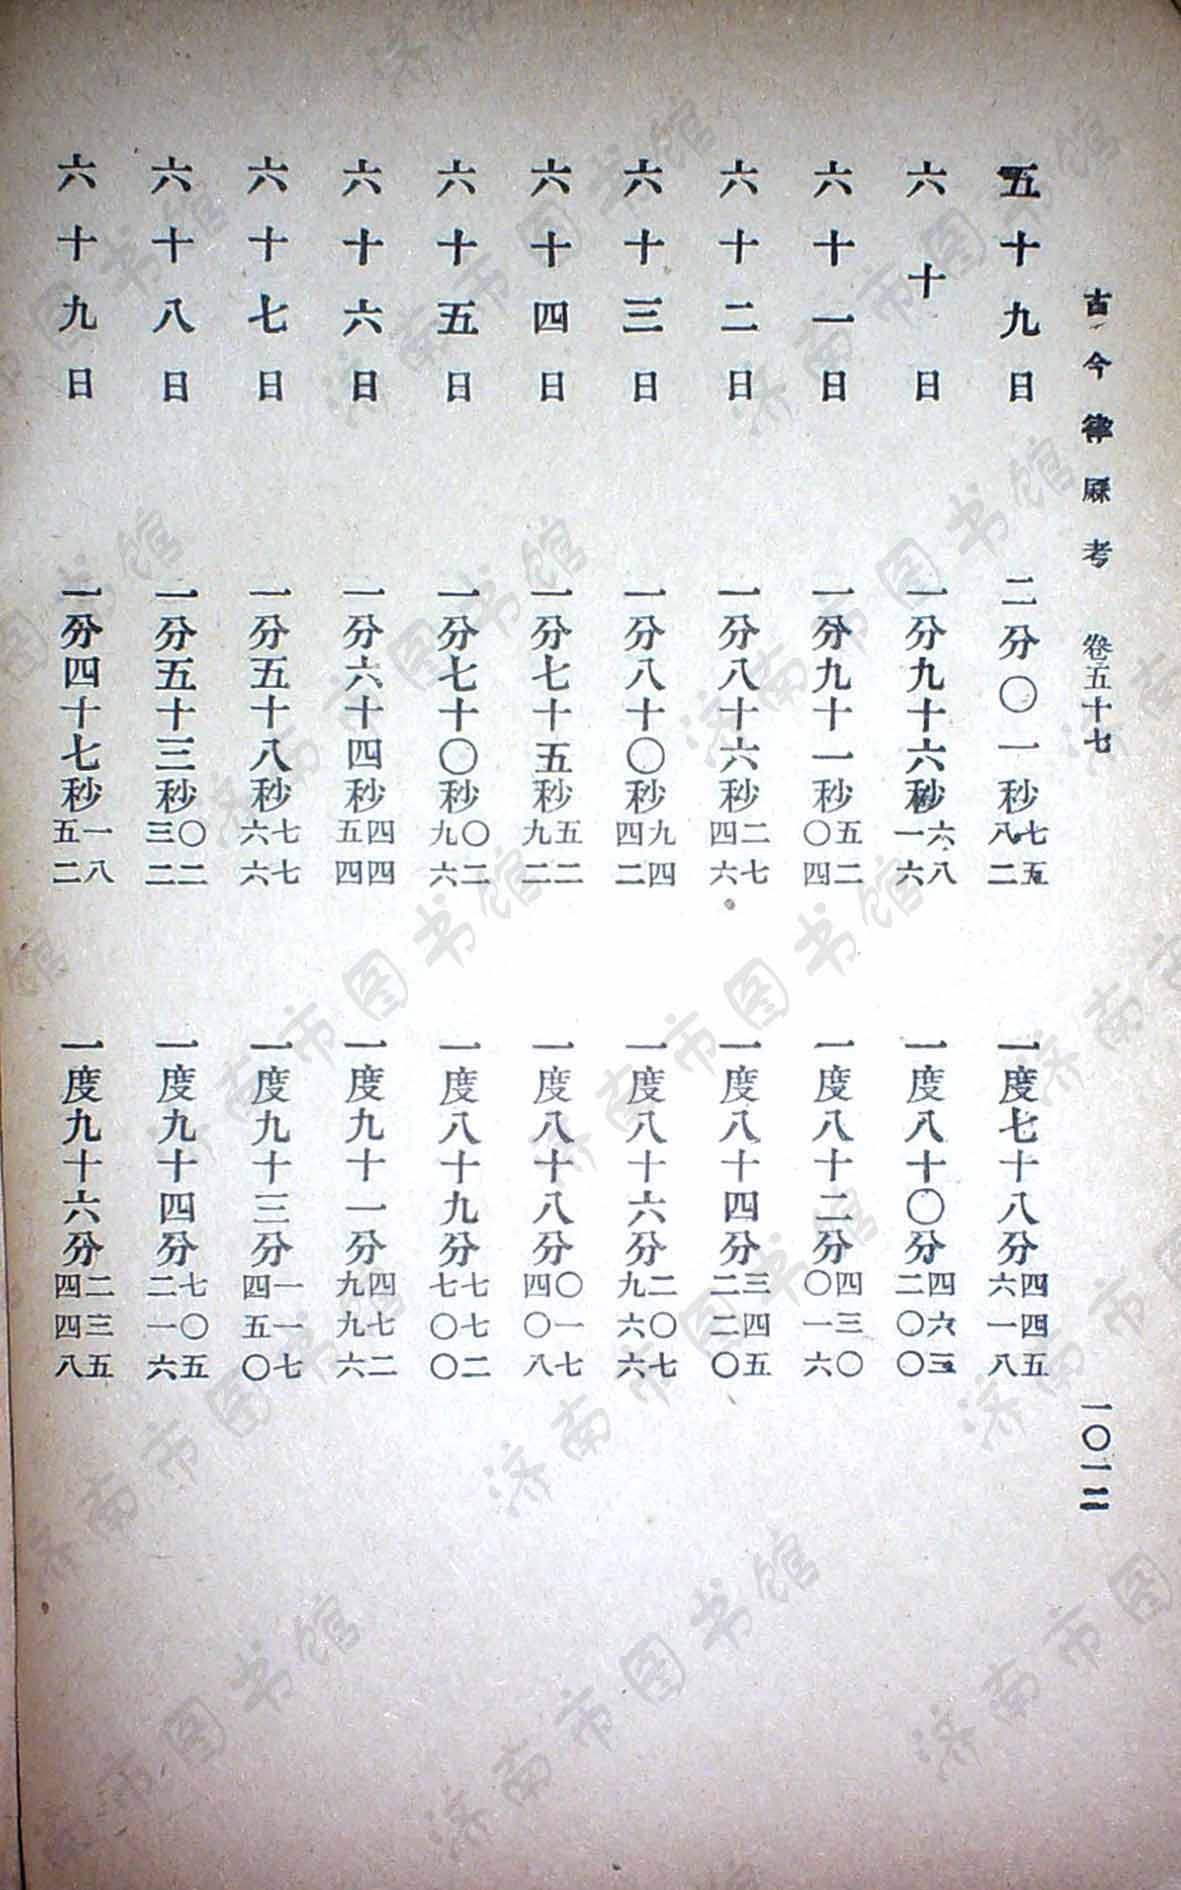 古今律厤考 卷五十七 一〇一二
五十九日 二分〇一秒七五八二 一度七十八分四四五六一八
六十日 一分九十六秒六八一六 一度八十〇分四六三二〇〇
六十一日 一分九十一秒五二〇四 一度八十二分四三〇〇一六
六十二日 一分八十六秒二七四六 一度八十四分三四五二二〇
六十三日 一分八十〇秒九四四二 一度八十六分二〇七九六六
六十四日 一分七十五秒五二九二 一度八十八分〇一七四〇八
六十五日 一分七十〇秒〇二九六 一度八十九分七七二七〇〇
六十六日 一分六十四秒四四五四 一度九十一分四七二九九六
六十七日 一分五十八秒七七六六 一度九十三分一一七四五〇
六十八日 一分五十三秒〇二三二 一度九十四分七〇五二一六
六十九日 一分四十七秒一八五二 一度九十六分二三五四四八